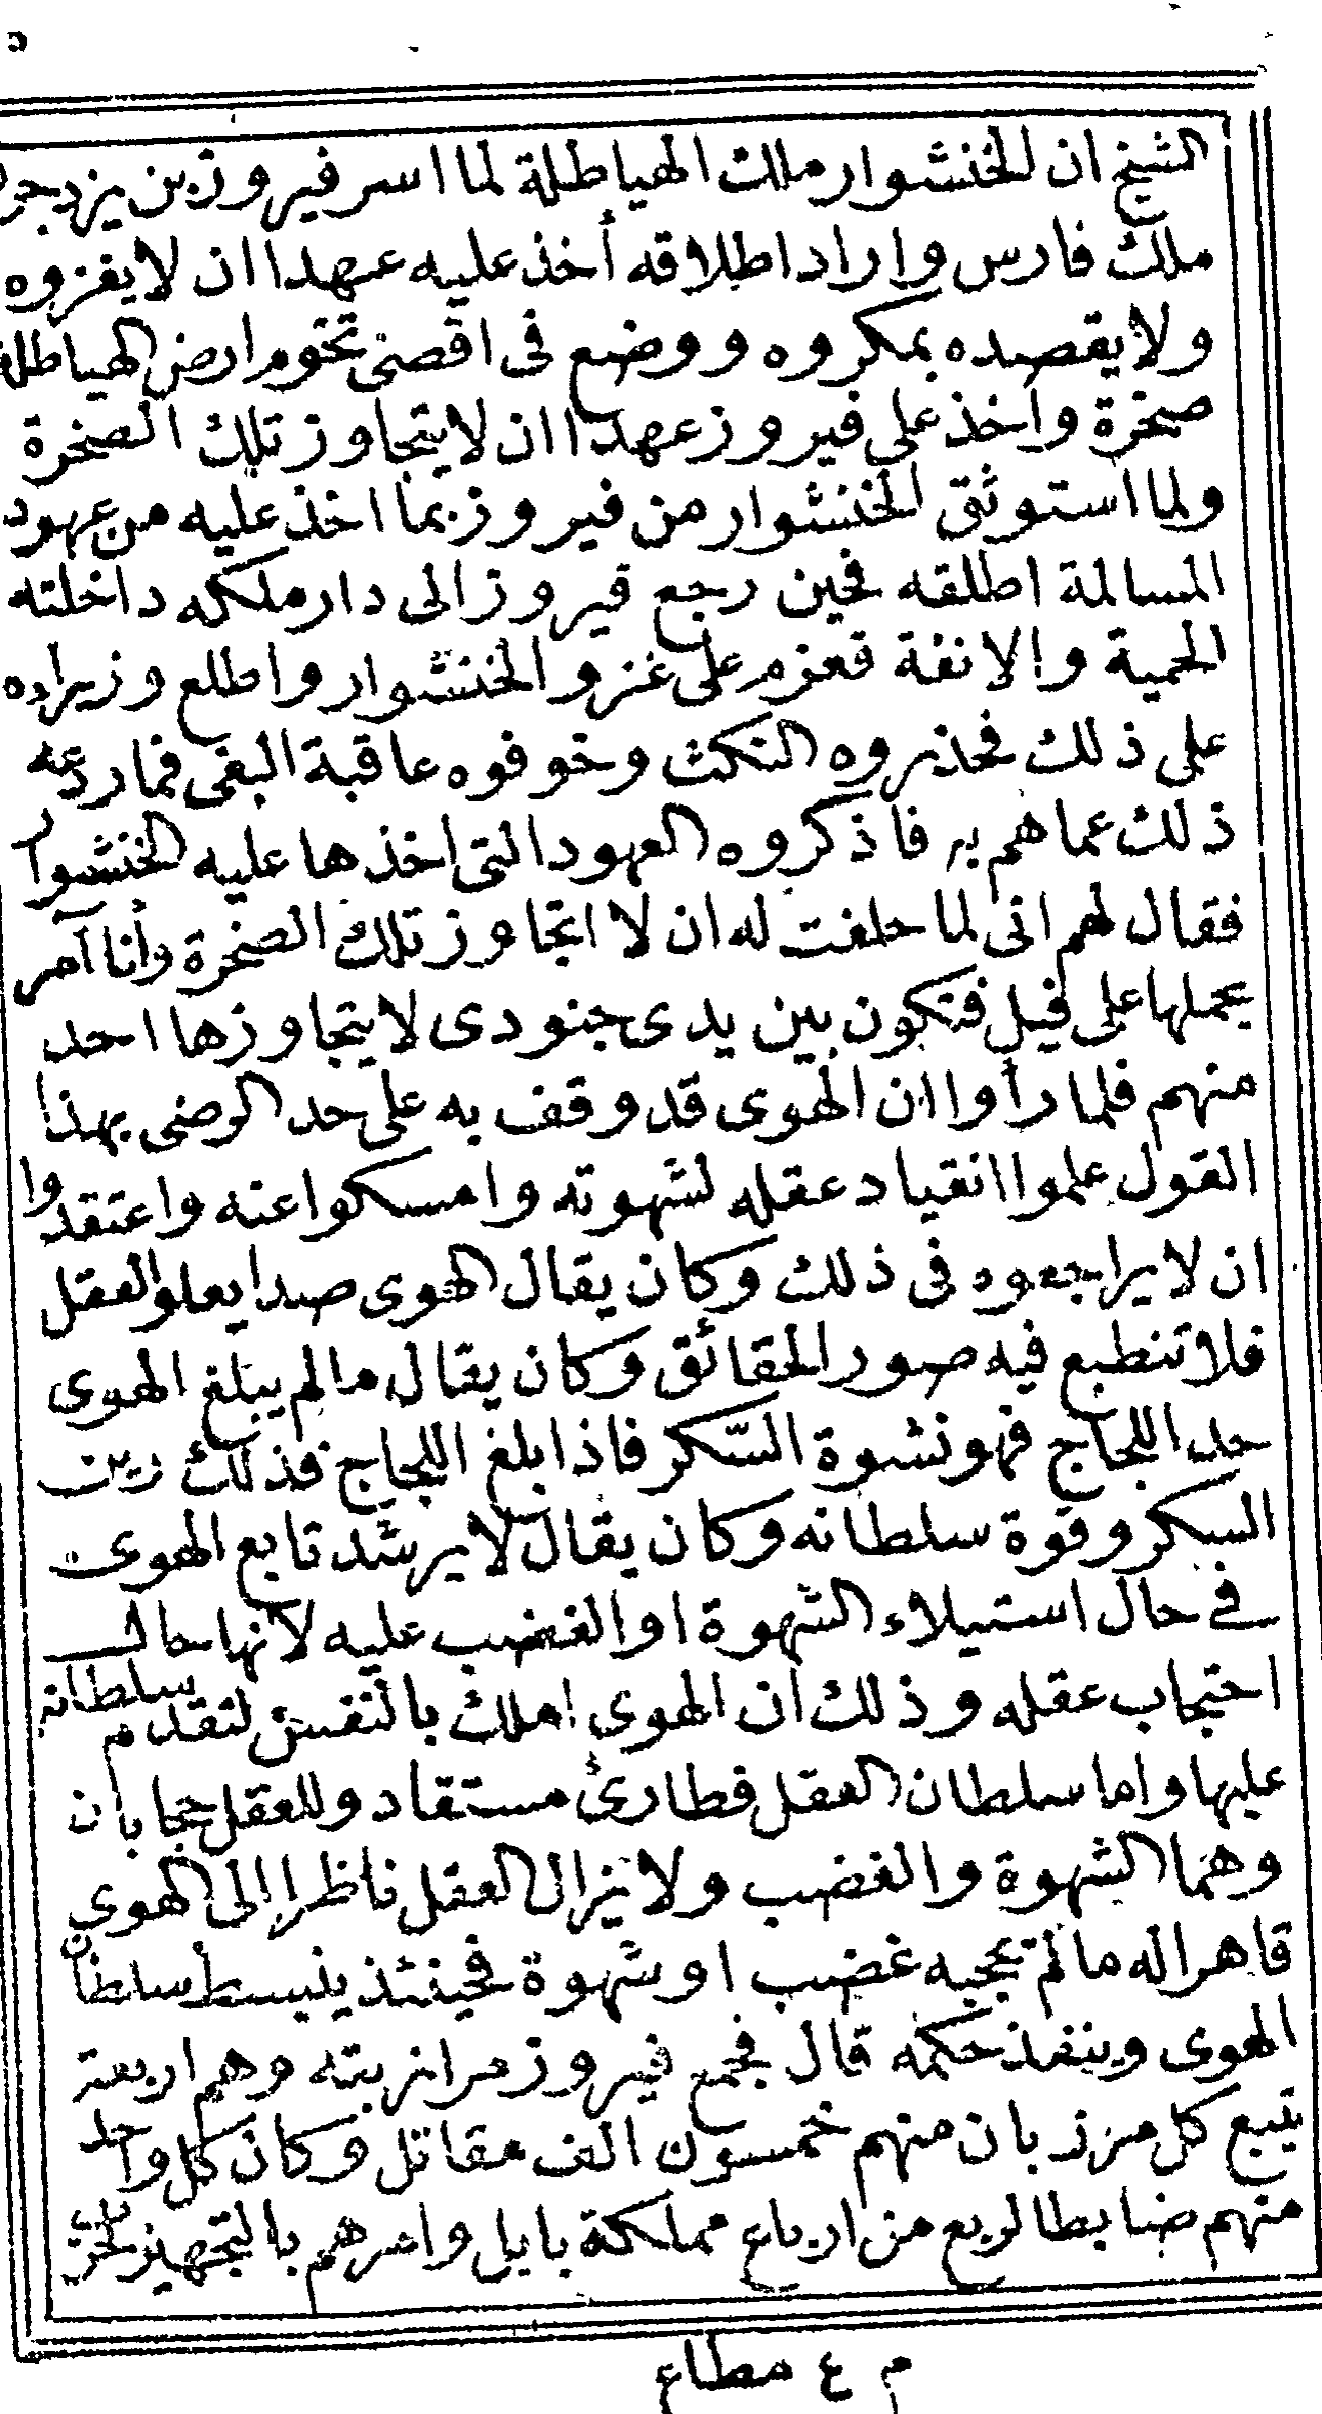 الشيخ ان الخنشوار ملك الهياطلة لما اسر فيروز بن يزدجرد
ملك فارس واراد اطلاقه أخذ عليه عهدا ان لا يغزوه
ولا يقصده بمكروه ووضع فى اقصى تخوم ارض الهياطلة
صخرة وأخذ على فيروز عهدا ان لا يتجاوز تلك الصخرة
ولما استوثق الخنشوار من فيروز بما اخذ عليه من عهود
المسالمة اطلقه فحين رجع فيروز الى دار ملكه داخلته
الحمية والانفة فعزم على غزو الخنشوار واطلع وزيراده
على ذلك فحذروه النكث وخوفوه عاقبة البغى فما ردعه
ذلك عما هم به فاذكروه العهود التى اخذها عليه الخنشوار
فقال لهم انى لما حلفت له ان لا اتجاوز تلك الصخرة وأنا آمر
بحملها على فيل فتكون بين يدى جنودى لا يتجاوزها احد
منهم فلما رأوا ان الهوى قد وقف به على حد الرضى بهذا
القول علموا انقياد عقله لشهوته وامسكوا عنه واعتقدوا
ان لا يراجعوه فى ذلك وكان يقال الهوى صدا يعلو العقل
فلا تنطبع فيه صور الحقائق وكان يقال ما لم يبلغ الهوى
حد اللجاج فهو نشوة السّكر فاذا بلغ اللجاج فذلك رين
السكر وقوة سلطانه وكان يقال لا يرشد تابع الهوى
فى حال استيلاء الشهوة او الغضب عليه لانها حال
احتجاب عقله وذلك ان الهوى املك بالنفس لتقدم سلطانه
عليها واما سلطان العقل فطارئ مستفاد وللعقل حجابان
وهما الشهوة والغضب ولا يزال العقل ناظرا الى الهوى
قاهرا له ما لم يحجبه غضب او شهوة فحينئذ ينبسط سلطان
الهوى وينفذ حكمه قال فجمع فيروز مرازبته وهم اربعة
يتبع كل مرزبان منهم خمسون الف مقاتل وكان كل واحد
منهم ضابطا لربع من ارباع مملكة بابل وامرهم بالتجهيز لحرب
م ع مطاع